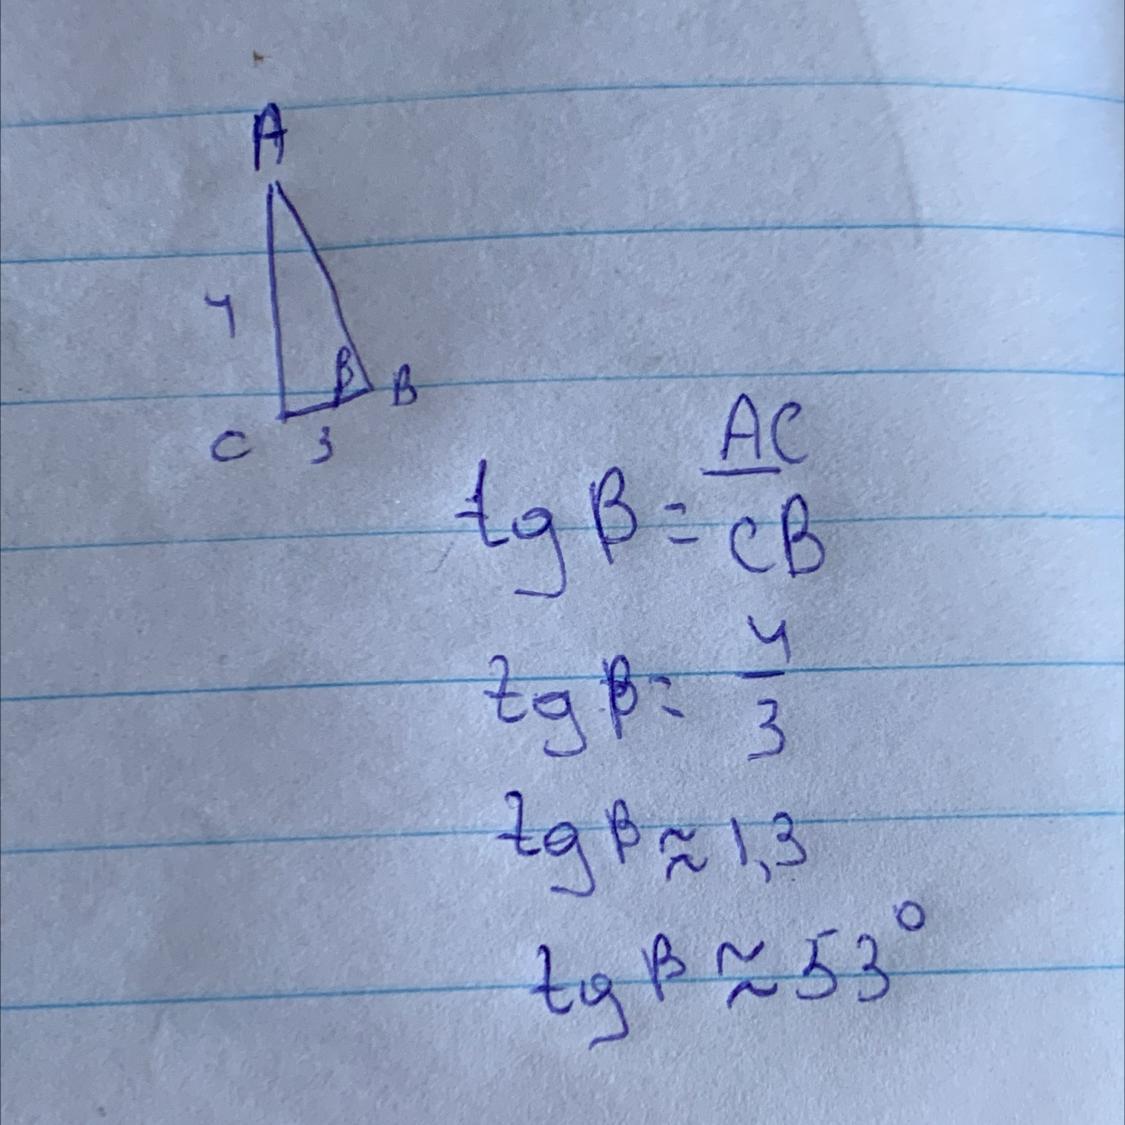 A
4
β B
C 3
tg β = AC/CB
tg β = 4/3
tg β ≈ 1,3
tg β ≈ 53°